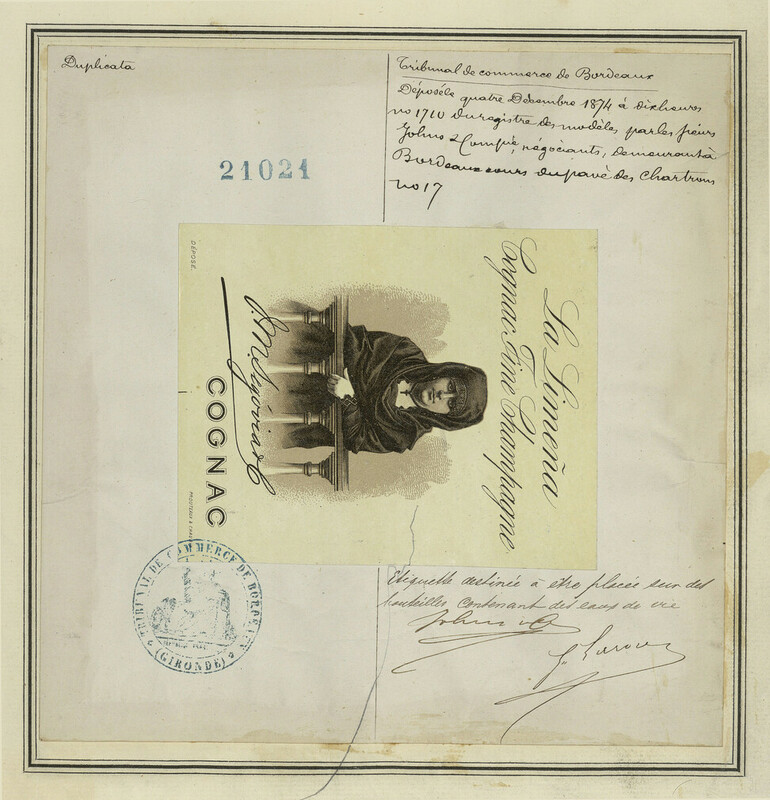 Duplicata
Tribunal de commerce de Bordeaux
Déposée quatre Décembre 1874 à dix heures
no 1710 du registre des modèles par les sieurs
Johns & Compie, négociants, demeurant à
Bordeaux cours du pavé des Chartrons
no 17
21021
La Limeña
Cognac Fine Champagne
J. M. Segovia & C
COGNAC
DÉPOSÉ
TRIBUNAL DE COMMERCE DE BORDEAUX
(GIRONDE)
Etiquette destinée a etre placée sur des
bouteilles contenant des eaux de vie
Johns & Co